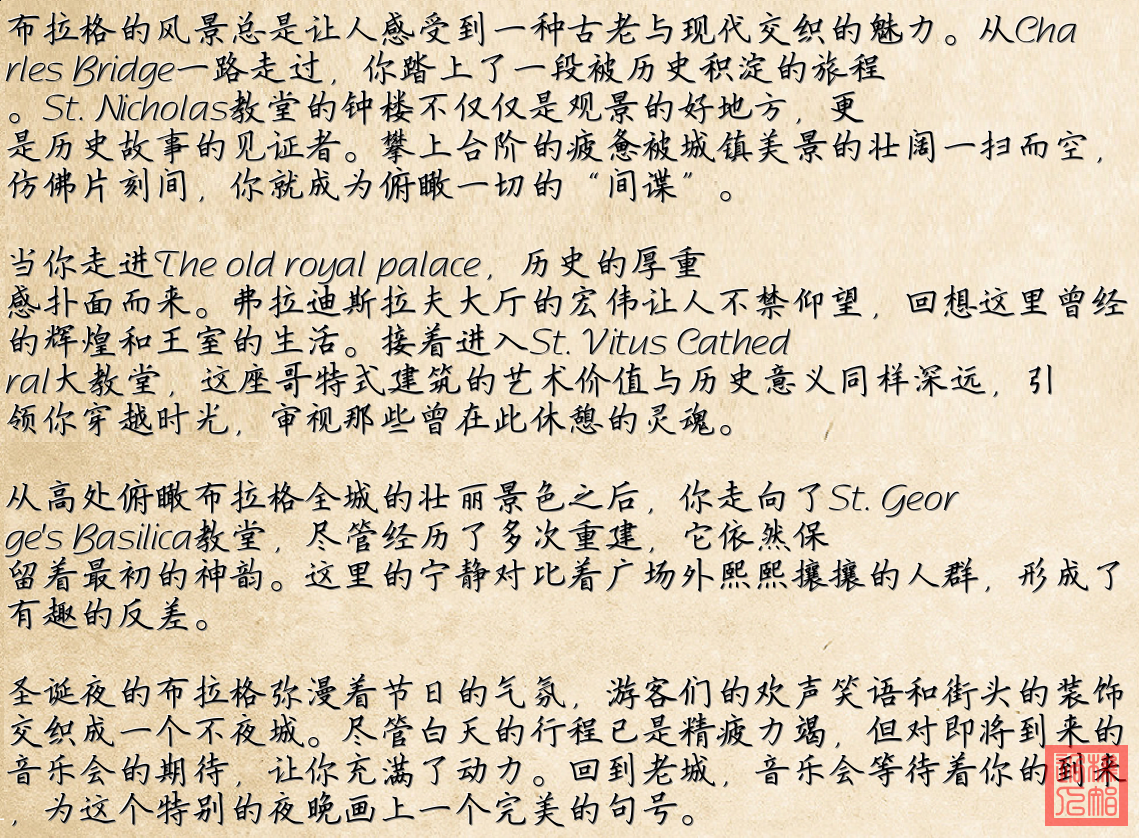 布拉格的风景总是让人感受到一种古老与现代交织的魅力。从Cha
rles Bridge一路走过，你踏上了一段被历史积淀的旅程
。St. Nicholas教堂的钟楼不仅仅是观景的好地方，更
是历史故事的见证者。攀上台阶的疲惫被城镇美景的壮阔一扫而空，
仿佛片刻间，你就成为俯瞰一切的“间谍”。
当你走进The old royal palace，历史的厚重
感扑面而来。弗拉迪斯拉夫大厅的宏伟让人不禁仰望，回想这里曾经
的辉煌和王室的生活。接着进入St. Vitus Cathed
ral大教堂，这座哥特式建筑的艺术价值与历史意义同样深远，引
领你穿越时光，审视那些曾在此休憩的灵魂。
从高处俯瞰布拉格全城的壮丽景色之后，你走向了St. Geor
ge's Basilica教堂，尽管经历了多次重建，它依然保
留着最初的神韵。这里的宁静对比着广场外熙熙攘攘的人群，形成了
有趣的反差。
圣诞夜的布拉格弥漫着节日的气氛，游客们的欢声笑语和街头的装饰
交织成一个不夜城。尽管白天的行程已是精疲力竭，但对即将到来的
音乐会的期待，让你充满了动力。回到老城，音乐会等待着你的到来
，为这个特别的夜晚画上一个完美的句号。